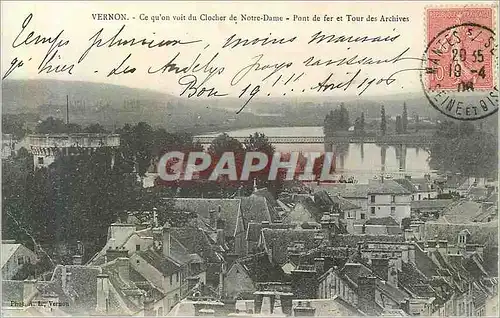 VERNON. - Ce qu'on voit du Clocher de Notre-Dame - Pont de fer et Tour des Archives
Temps pluvieux, moins mauvais
qu'hier - des Andelys pays ravissant
Bon, 19!!! Avril 1906
MANTES S/S
20 35
19-4
06
SEINE ET OISE
CPArama
Phot. A. L., Vernon